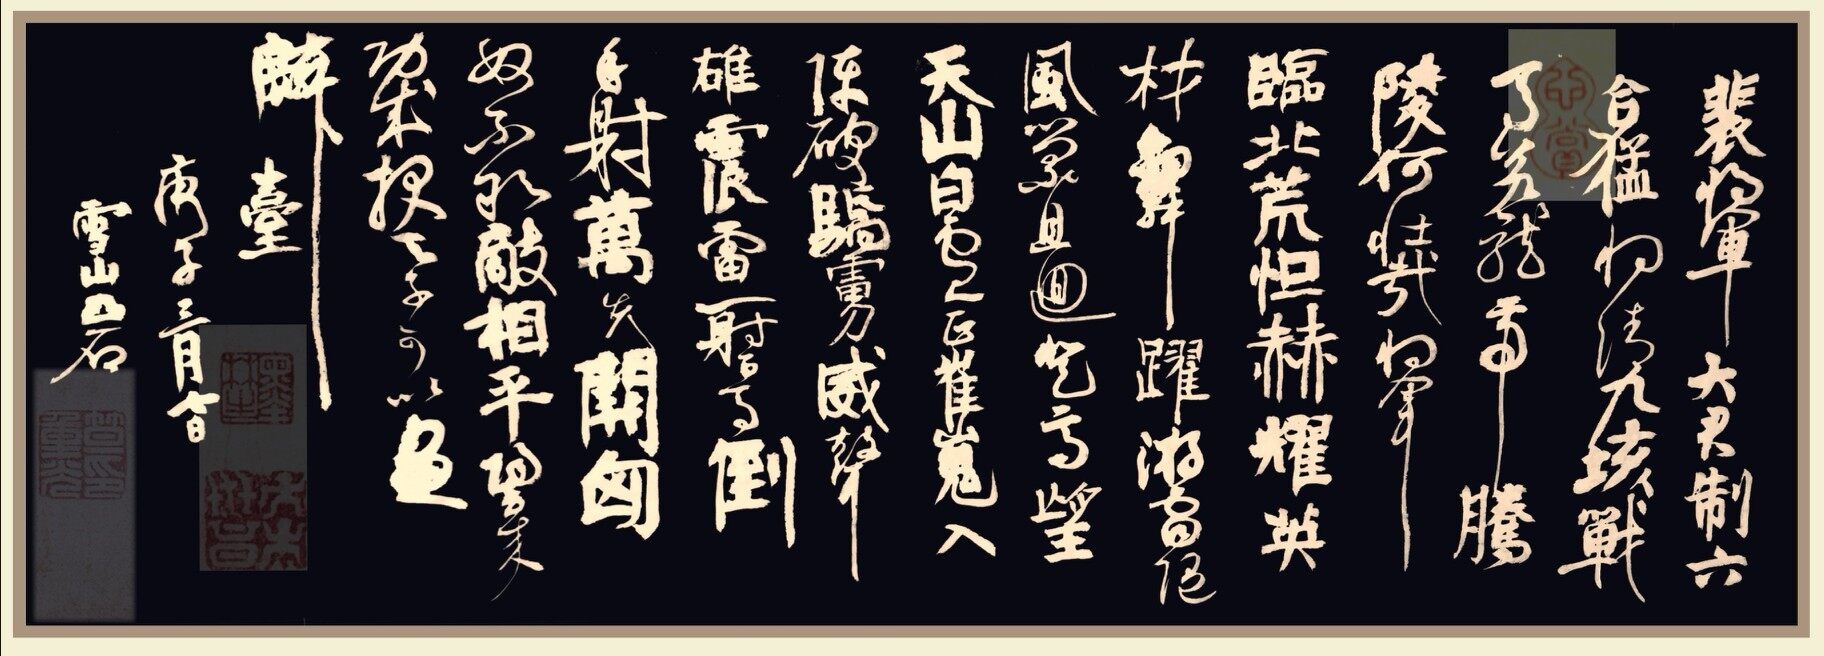 裴將軍 大君制六
合猛將清九垓戰
馬若龍虎騰
陵何壯哉將軍
臨北荒恒赫耀英
材舞躍游電隨
風縈且迴登高望
天山白雲正崔嵬入
陣破驕虜威聲
雄震雷一射百馬倒
再射萬夫開匈
奴不敢敵相呼歸來
功成報天子可以畫
麟臺
庚子三月日
雪山岩